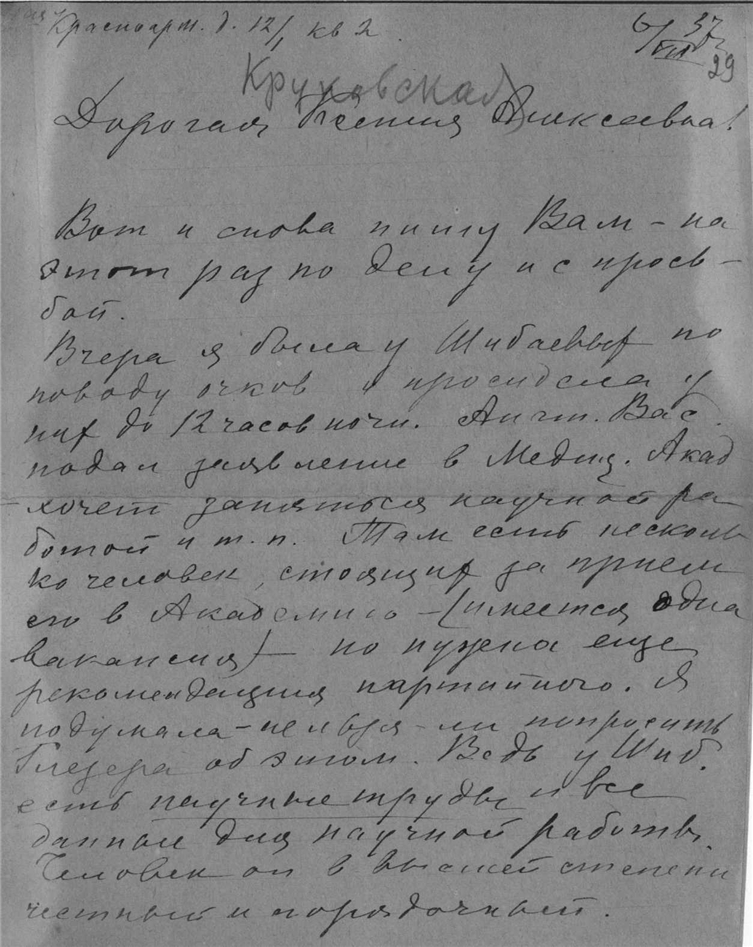 Красноарм. д. 12/1 кв 2.
6/VIII 37
29
Круковская)
Дорогая Ксения Алексеевна!
Вот и снова пишу Вам – на
этот раз по делу и с прось-
бой.
Вчера я была у Шибаевых по
поводу очков и просидела у
них до 12 часов ночи. Ант. Вас.
подал заявление в Медиц. Акад
– хочет заняться научной ра
ботой и т. п. Там есть несколь
ко человек, стоящих за прием
его в Академию – (имеется одна
вакансия) – но нужна еще
рекомендация партийного. Я
подумала – нельзя – ли попросить
Глезера об этом. Ведь у Шиб.
есть научные труды и все
данные для научной работы.
Человек он в высшей степени
честный и порядочный.